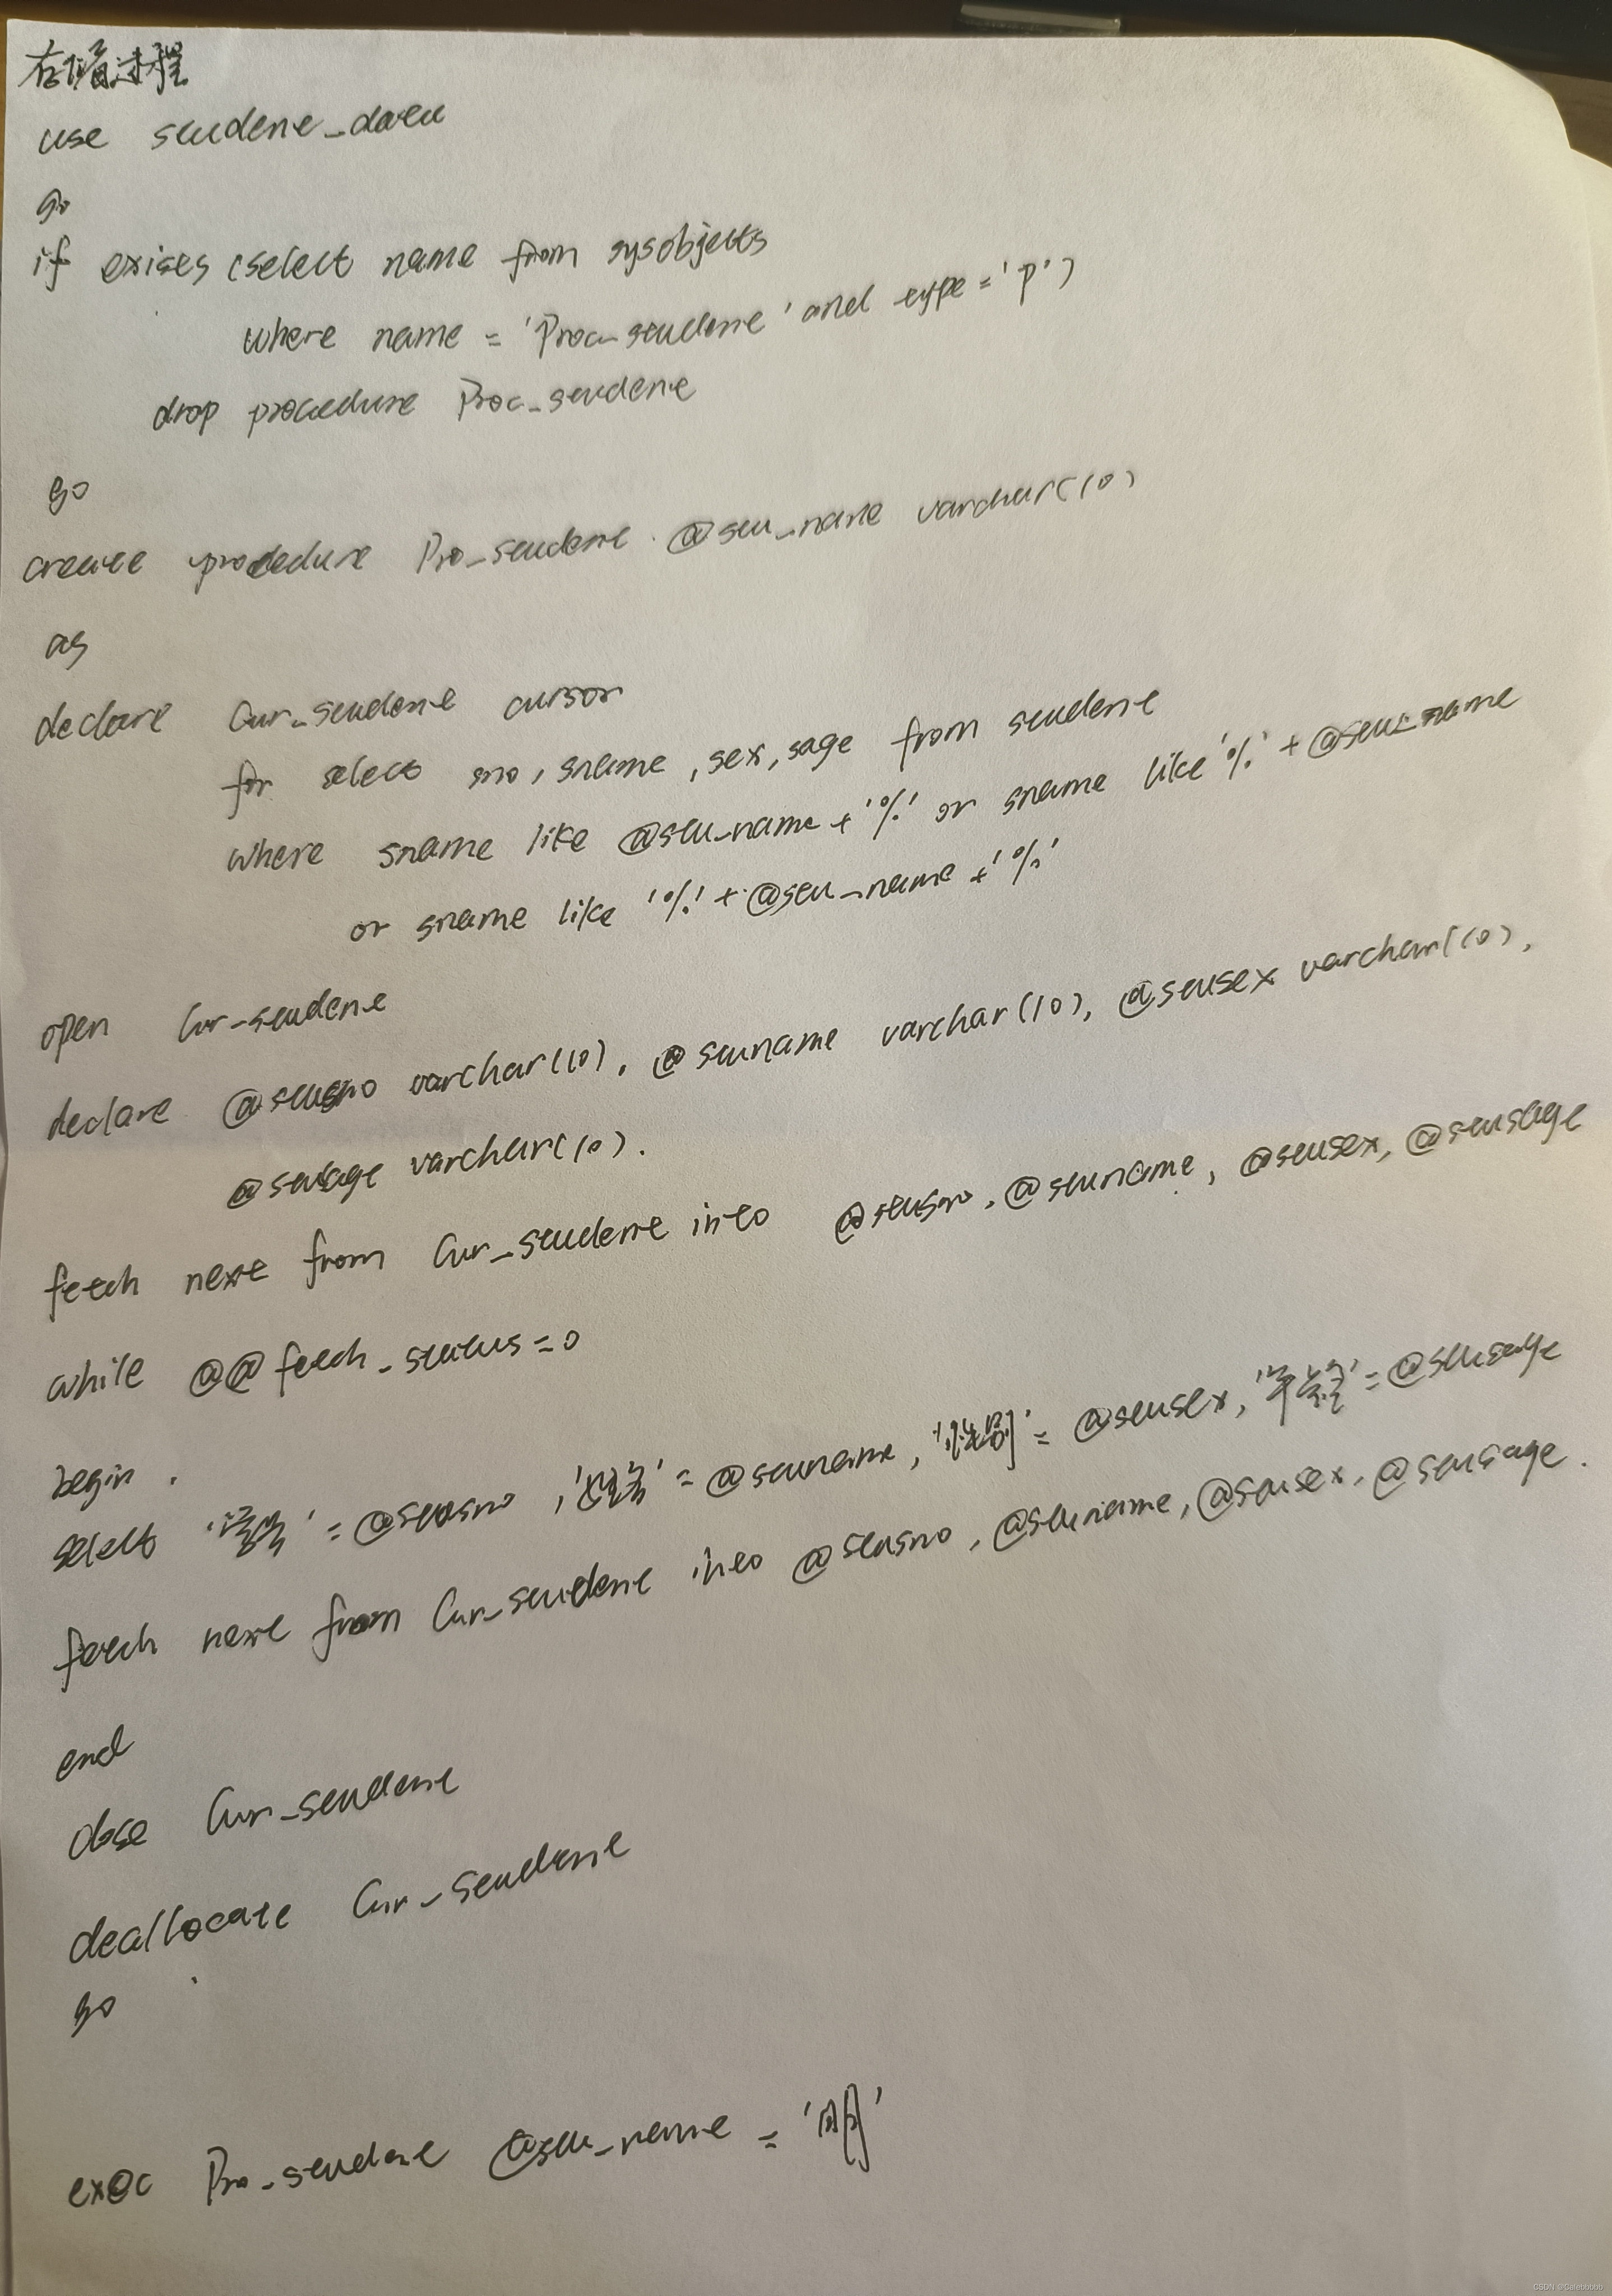 存储过程
use student_data
go
if exists (select name from sysobjects
where name = 'Proc_student' and type = 'p')
drop procedure Proc_student
go
create procedure Pro_student @stu_name varchar(10)
as
declare Cur_student cursor
for select sno, sname, sex, sage from student
where sname like @stu_name + '%' or sname like '%' + @stu_name
or sname like '%' + @stu_name + '%'
open Cur_student
declare @stusno varchar(10), @stuname varchar(10), @stusex varchar(10),
@stusage varchar(10).
fetch next from Cur_student into @stusno, @stuname, @stusex, @stusage
while @@fetch_status = 0
begin
select '学号' = @stusno, '姓名' = @stuname, '性别' = @stusex, '年龄' = @stusage
fetch next from Cur_student into @stusno, @stuname, @stusex, @stusage.
end
close Cur_student
deallocate Cur_student
go
exec Pro_student @stu_name = '明'
CSDN @Calebbbbb